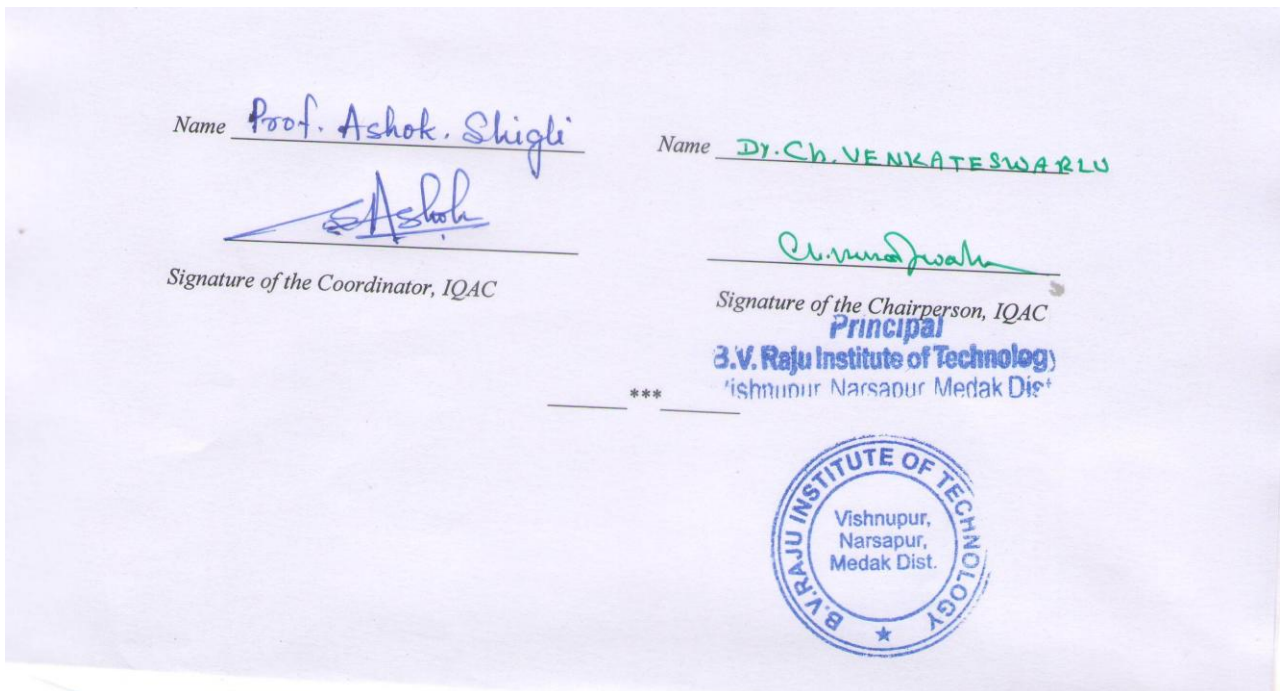 Name Prof. Ashok. Shigli
S Ashok
Signature of the Coordinator, IQAC
Name Dr. Ch. VENKATESWARLU
Signature of the Chairperson, IQAC
Principal
B.V. Raju Institute of Technology
Vishnupur Narsapur Medak Dist
***
B.V.RAJU INSTITUTE OF TECHNOLOGY
Vishnupur,
Narsapur,
Medak Dist.